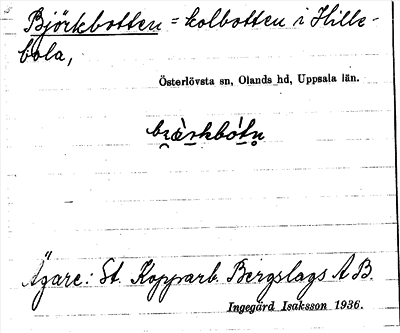 Björkbotten = kolbotten i Hille-
bola,
Österlövsta sn, Olands hd, Uppsala län.
Ägare: St. Kopparb. Bergslags A B.
Ingegärd Isaksson 1936.